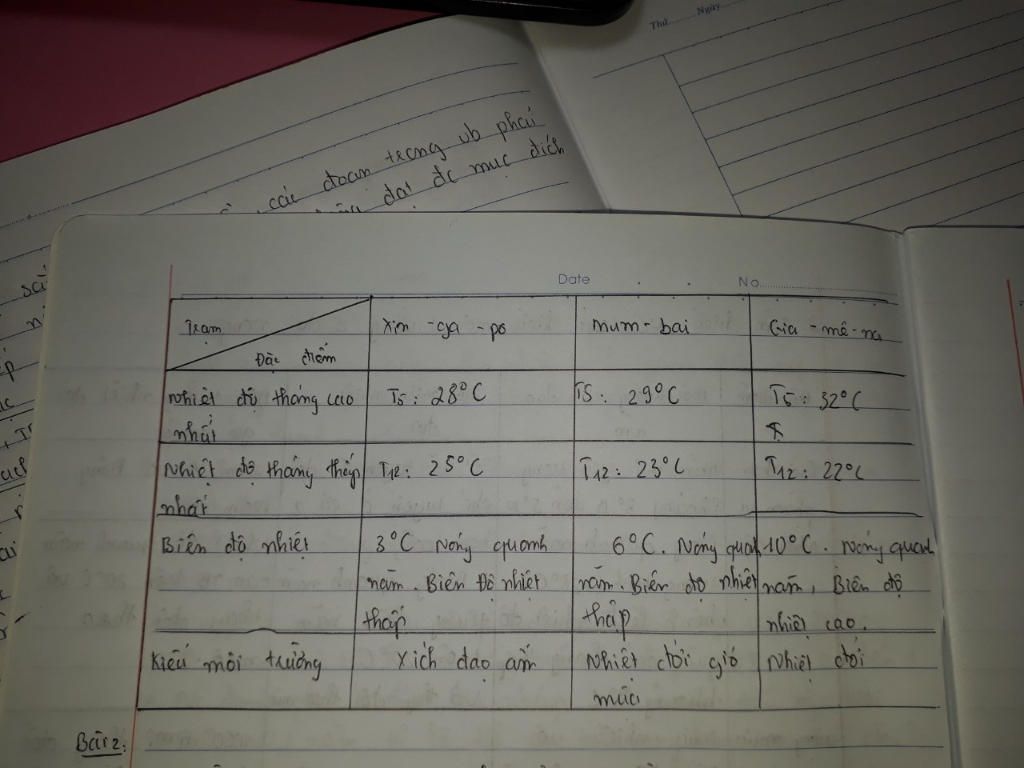 Thứ Ngày
các đoạn trong vb phải
đạt đc mục đích
Date No.
Trạm
Đặc điểm
Xin - ga - po
Mum - bai
Gia - mê - na
Nhiệt độ tháng cao
nhất
T5: 28°C
T5: 29°C
T5: 32°C
Nhiệt độ tháng thấp
nhất
T12: 25°C
T12: 23°C
T12: 22°C
Biên độ nhiệt
3°C Nóng quanh
năm. Biên Độ nhiệt
thấp
6°C. Nóng quanh
năm. Biên độ nhiệt
thấp
10°C. Nóng quanh
năm, Biên độ
nhiệt cao.
Kiểu môi trường
Xích đạo ẩm
Nhiệt đới gió
mùa
Nhiệt đới
Bài 2: